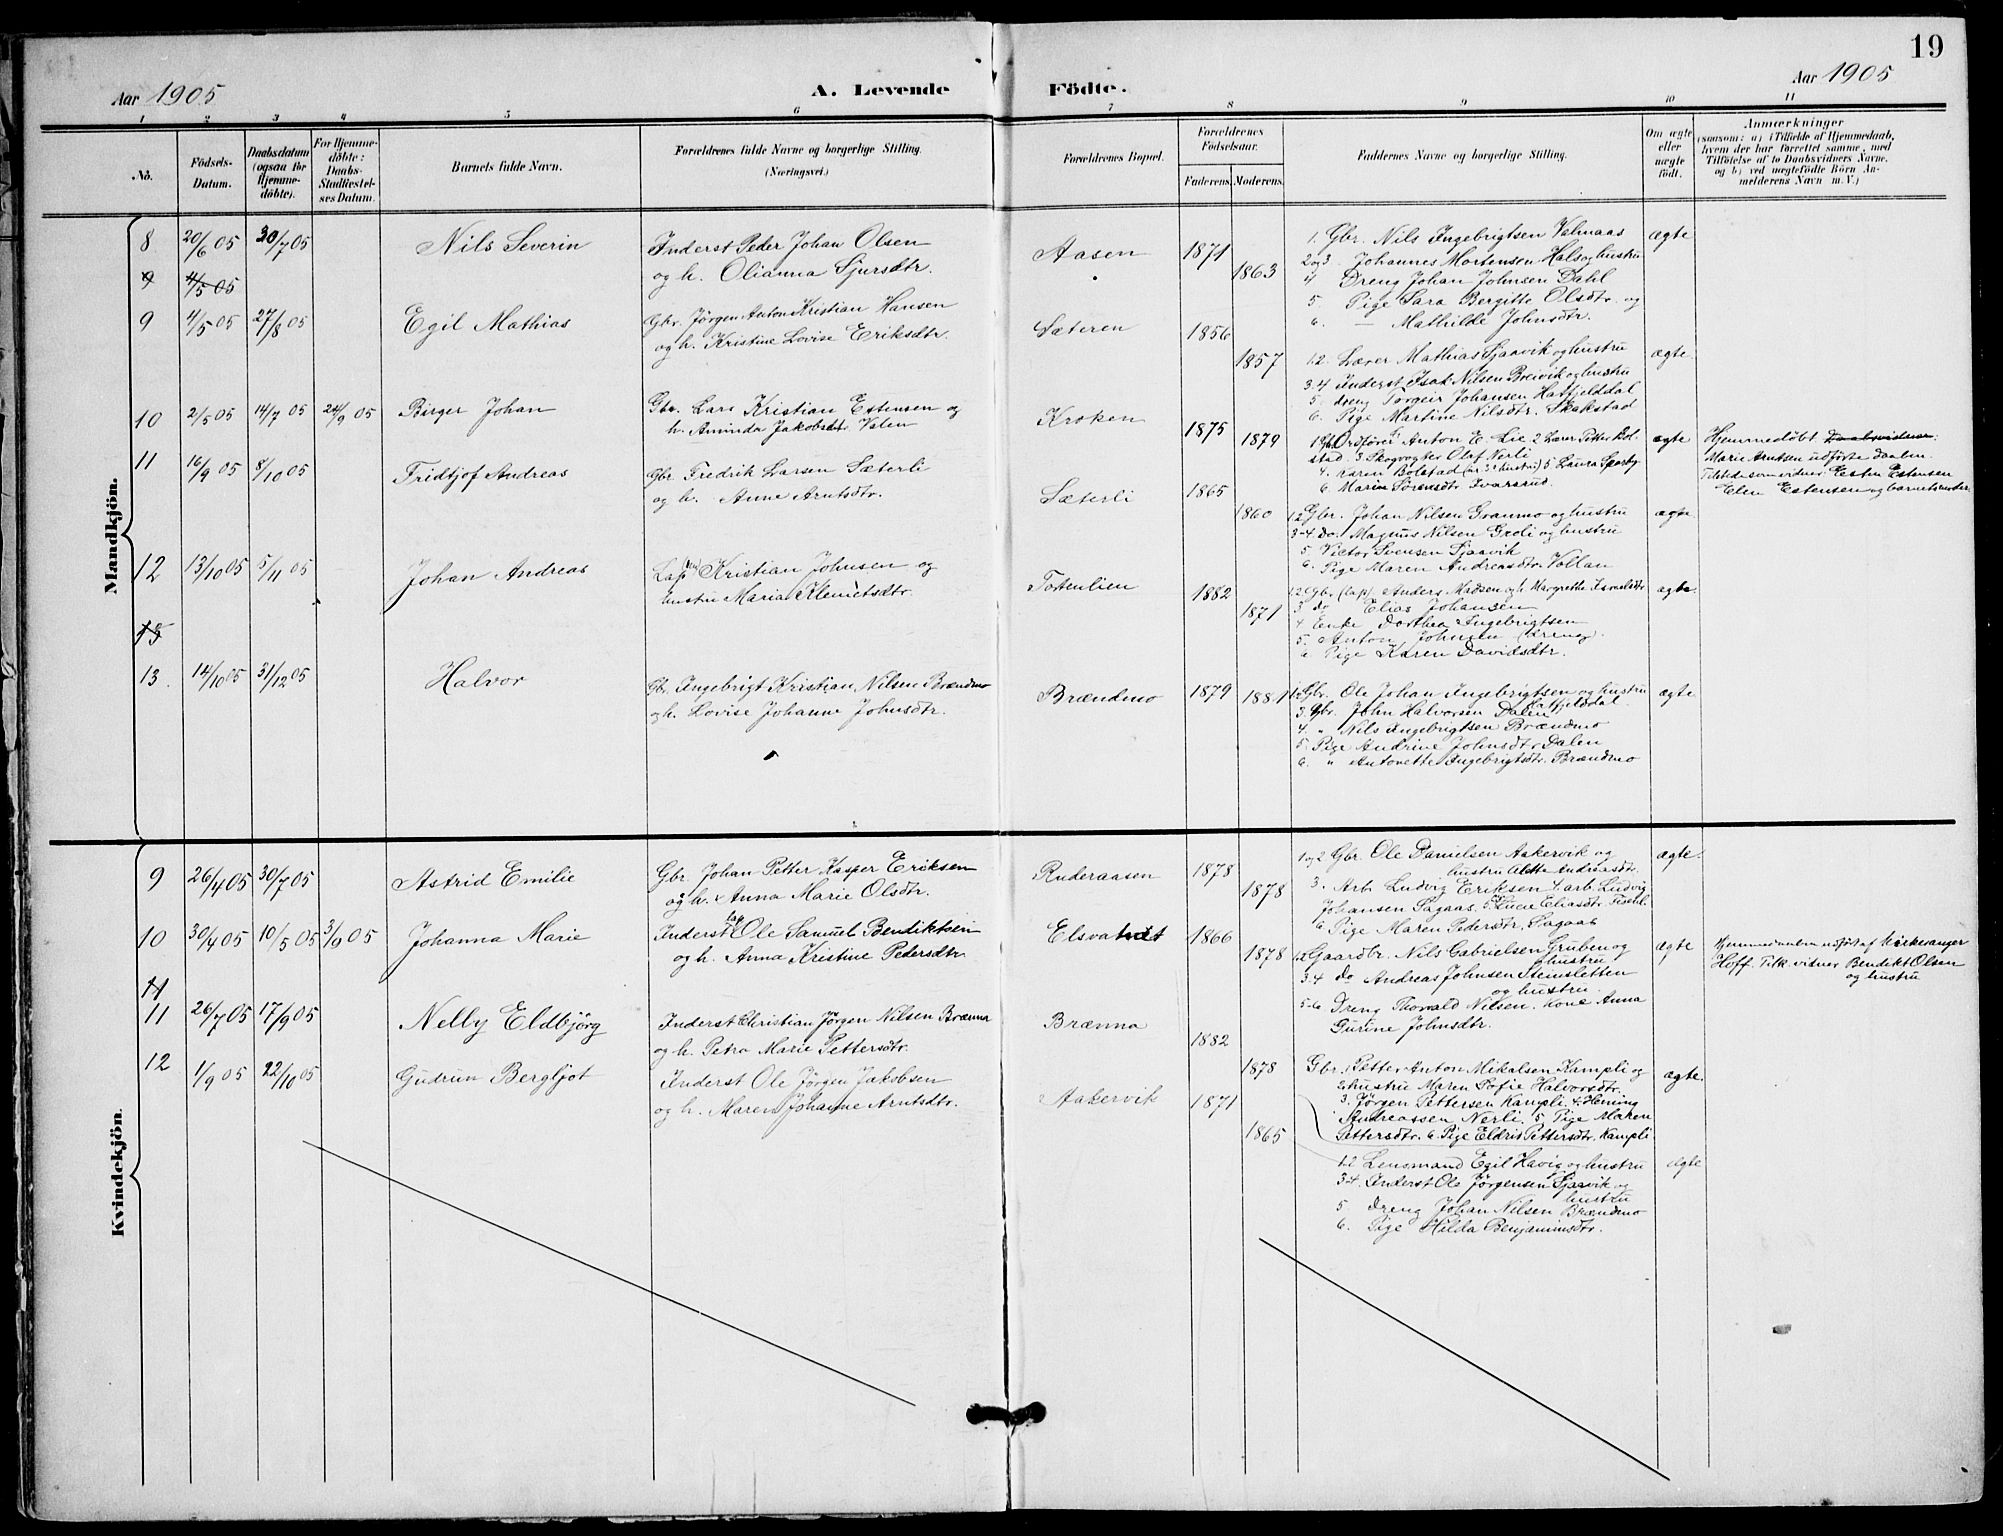 19
Aar 1905
A. Levende
Födte.
Aar 1905
1 2 3 4 5 6 7 8 9 10 11
No.
Födsels-
Datum.
Daabsdatum
(ogsaa for
Hjemme-
döbte).
For Hjemme-
döbte:
Daabs-
Stadfæstel-
ses Datum.
Barnets fulde Navn.
Forældrenes fulde Navne og borgerlige Stilling.
(Næringsvei.)
Forældrenes Bopæl.
Forældrenes
Födselsaar.
Faderens. Moderens.
Faddernes Navne og borgerlige Stilling.
Om ægte
eller
uægte
födt.
Anmærkninger
(saasom: a) i Tilfælde af Hjemmedaab,
hvem der har forrettet samme, med
Tilföielse af to Daabsvidners Navne,
og b) ved uægtefödte Börn An-
melderens Navn m. V.)
Mandkjön.
8 20/6 05 30/7 05 Nils Severin
Inderst Peder Johan Olsen
og h. Olianna Sjursdtr.
Aasen 1871 1863
1. Gbr. Nils Ingebrigtsen Valmaas
2og3. Johannes Mortensen Hals og hustru
4 Dreng Johan Johnsen Dahl
5 Pige Sara Bergitte Olsdtr. og
6. — Mathilde Johnsdtr.
ægte
9 4/5 05
9 4/5 05 27/8 05 Egil Mathias
Gbr. Jörgen Anton Kristian Hansen
og h. Kristine Lovise Eriksdtr.
Sæteren 1856 1857
1.2. Lærer Mathias Sjaavik og hustru
3.4 Inderst Isak Nilsen Breivik og hustru
5. dreng Torgeir Johansen Hatfjelddal
6. Pige Martine Nilsdtr. Skakstad
ægte
10 2/5 05 14/7 05 24/9 05 Birger Johan
Gbr. Lars Kristian Estensen og
h. Aminda Jakobsdtr Valen
Kroken 1875 1879
Anton E. Lie 2 Lærer Petter Bol-
stad 3 Skogvogter Olaf Nerli
4. Karen Bolstad 5 Laura
6. Marie Sörensdtr. Ivarsrud.
ægte
Hjemmedöbt Daabsvidner:
Marie Arntsen udförte daaben.
Tilstede som vidner: Esten Estensen
Elen Estensen og barnets moder
11 16/9 05 8/10 05 Fridtjof Andreas
Gbr. Fredrik Larsen Sæterli
og h. Anne Arntsdtr.
Sæterli 1865 1860
1.2 Gbr. Johan Nilsen Granmo og hustru
3-4 Do. Magnus Nilsen Groli og hustru
5. Victor Svensen Sjaavik
6. Pige Maren Andreasdtr. Vollan
ægte
12 13/10 05 5/11 05 Johan Andreas
Lap Kristian Johnsen og
hustru Maria Klemetsdtr.
Tortenlien 1882 1871
1.2. Gbr (lap) Anders Madsen og h. Margrethe
3 do Elias Johansen
4. Enke Dorthea Ingebrigtsen
5. Anton Johnsen (dreng).
6 Pige Karen Davidsdtr.
ægte
13. 14/10 05 31/12 05 Halvor
Gbr. Ingebrigt Kristian Nilsen Brændmo
og h. Lovise Johanne Johnsdtr.
Brændmo 1879 1881
1.2 Gbr. Ole Johan Ingebrigtsen og hustru
Hatfjelddal.
3. Gbr. John Halvorsen Dalen
4. " Nils Ingebrigtsen Brændmo
5. Pige Andrine Johnsdtr. Dalen
6. " Antonette Ingebrigtsdtr. Brændmo
ægte
Kvindekjön.
9 26/4 05 30/7 05 Astrid Emilie
Gbr. Johan Petter Kasper Eriksen
og h. Anna Marie Olsdtr.
Ruderaasen 1878 1878
1 og 2 Gbr. Ole Danielsen Aakervik og
hustru Alette Andreasdtr.
3. Arb. Ludvig Eriksen 4. arb. Ludvig
Johansen Sagaas 5. Lucie Eliasdtr.
6. Pige Maren Pedersdtr. Sagaas
ægte.
10 30/4 05 10/5 05 3/9 05 Johanna Marie
Inderst lap Ole Samuel Bendiktsen
og h. Anna Kristine Pedersdtr.
Elsvatnet 1866 1878
1.2 Gaardbr. Nils Gabrielsen Gruben og
hustru
3.4 Do Andreas Johnsen Steinsletten
og hustru.
5-6 Dreng Thorvald Nilsen. Kone Anna
Gurine Johnsdtr.
ægte
Hjemmedaaben udfört af Kirkesanger
Hoff. Tilk. vidner Bendikt Olsen
og hustru
11 26/7 05 17/9 05 Nelly Eldbjörg
Inderst Christian Jörgen Nilsen Brænna
og h. Petra Marie Pettersdtr.
Brænna 1882 1878
Gbr. 1 Petter Anton Mikalsen Kampli og
2 hustru Maren Sofie Halvorsdtr.
3. Jörgen Pettersen Kampli 4. Heming
Andreassen Nerli. 5. Pige Maren
Pettersdtr. 6. Pige Eldrid Pettersdtr. Kampli
ægte.
12 1/9 05 22/10 05 Gudrun Bergljot
Inderst Ole Jörgen Jakobsen
og h. Maren Johanne Arntsdtr.
Aakervik 1871 1865
1.2 Lensmand Egil Havig og hustru
3.4. Inderst Ole Jörgensen Sjaavik og
hustru
5 Dreng Johan Nilsen Brændmo
6. Pige Hilda Benjaminsdtr.
ægte